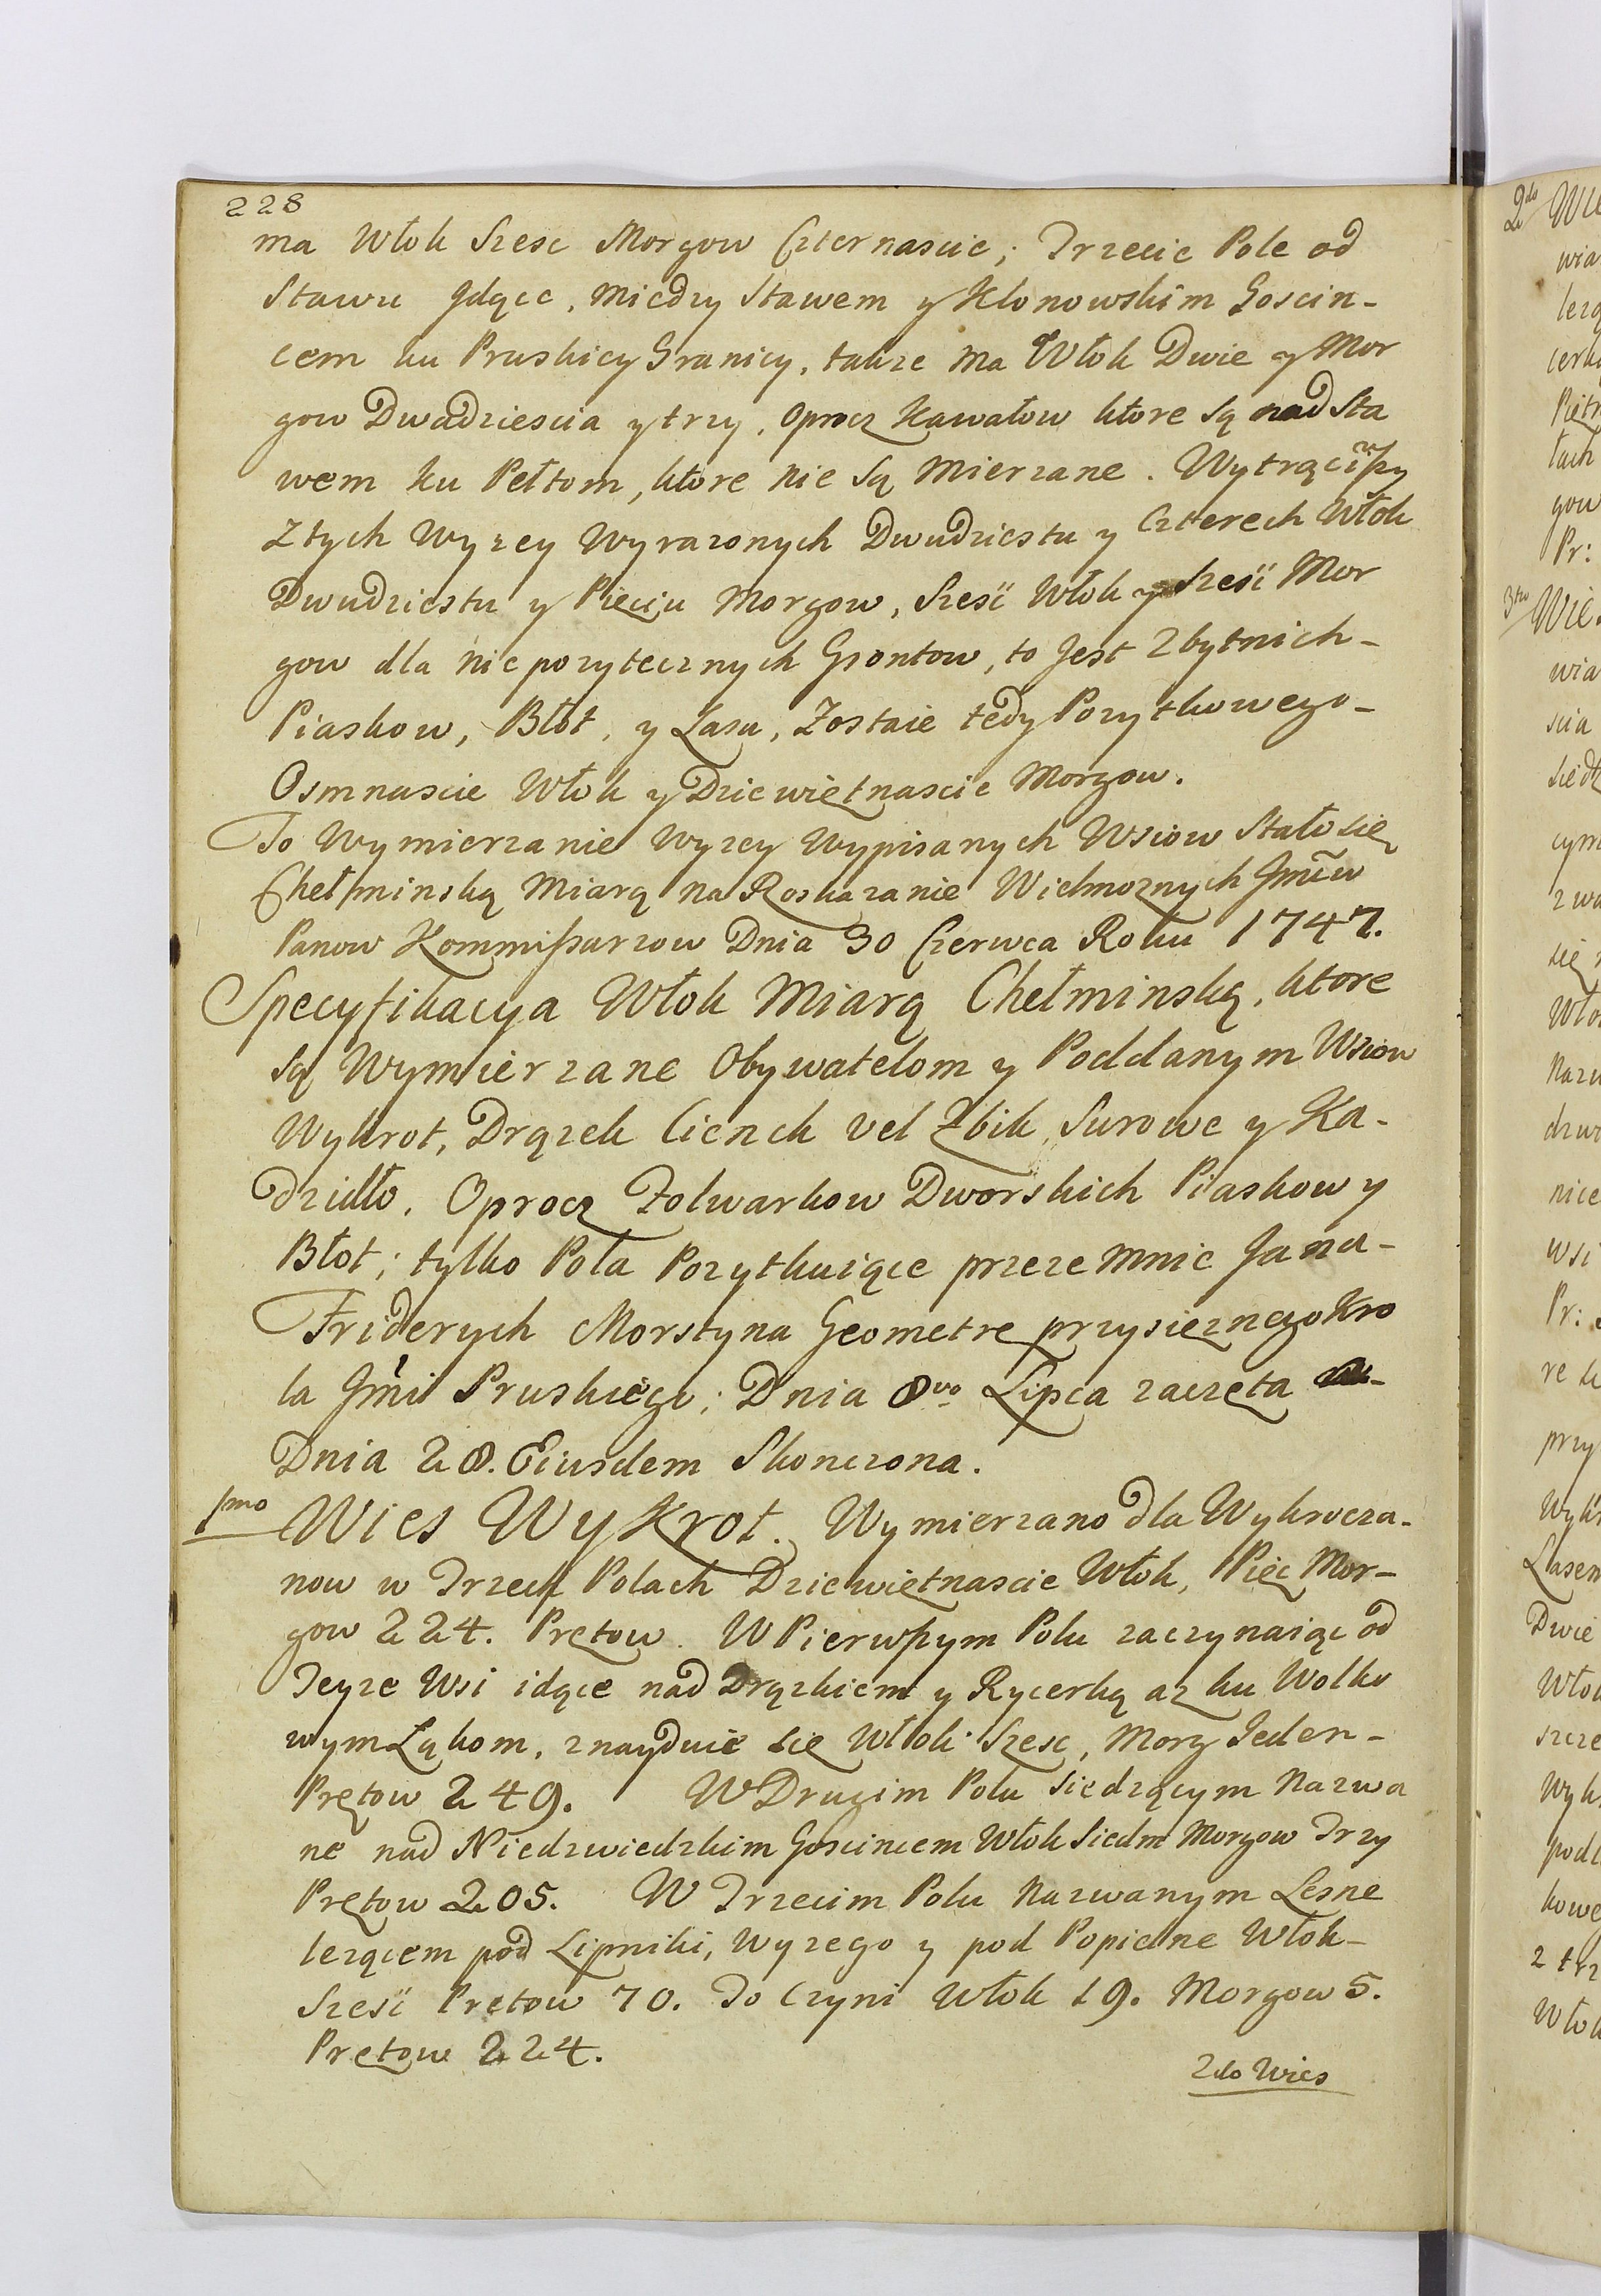 228
ma Włok Szesc Morgow Czternascie; Trzecie Pole od
Stawu Jdące, Miedzy Stawem y Klonowskim Goscin-
cem ku Pruskiey Granicy, takze ma Włok Dwie y Mor
gow Dwadziescia y trzy, Oprocz Kawałow ktore są nad Sta
wem ku Pełtom, ktore nie są Mierzane. Wytrąciwszy
Z tych Wyzey Wyrazonych Dwudziestu y Czterech Włok
Dwudziestu y Pięciu Morgow, Szesć Włok y Szesć Mor
gow dla niepozytecznych Grontow, to Jest Zbytnich-
Piaskow, Błot, y Lasu, Zostaie tedy Pozytkowego-
Osmnascie Włok y Dziewiętnascie Morgow.
To Wymierzanie Wyzey Wypisanych Wsiow Stało się
Chełminską Miarą na Roskazanie Wielmoznych Jmciow
Panow Kommissarzow Dnia 30 Czerwca Roku 1747.
Specyfikacya Włok Miarą Chełminską, ktore
są Wymierzane Obywatelom y Poddanym Wsiow
Wykrot, Drązek Cienck vel Zbik, Surowe y Ka-
dzidło, Oprocz Folwarkow Dworskich Piaskow y
Błot; tylko Pola Pozytkuiące przeze mnie Jana-
Friderych Morstyna Geometre przysięznego Kro
la Jmci Pruskiego; Dnia 8vo Lipca zaczęta
Dnia 28. Eiusdem Skonczona.
1mo Wies WyKrot. Wymierzano dla Wykrocza-
now w Trzech Polach Dziewiętnascie Włok, Pięc Mor-
gow 224. Prętow. W Pierwszym Polu zaczynaiąc od
Teyze Wsi idące nad Drązkiem y Rycerką az ku Wolko
wym Łąkom, znayduie się Włok Szesc, Morg Jeden-
Prętow 249. W Drugim Polu siedzącym Nazwa
ne nad Niedzwiedzkim Goscincem Włok Siedm Morgow Trzy
Prętow 205. W Trzecim Polu Nazwanym Lesne
lezącem pod Lipniki, Wyzego y pod Popielne Włok-
Szesć Prętow 70. To Czyni Włok 19. Morgow 5.
Prętow 224.
2do Wies